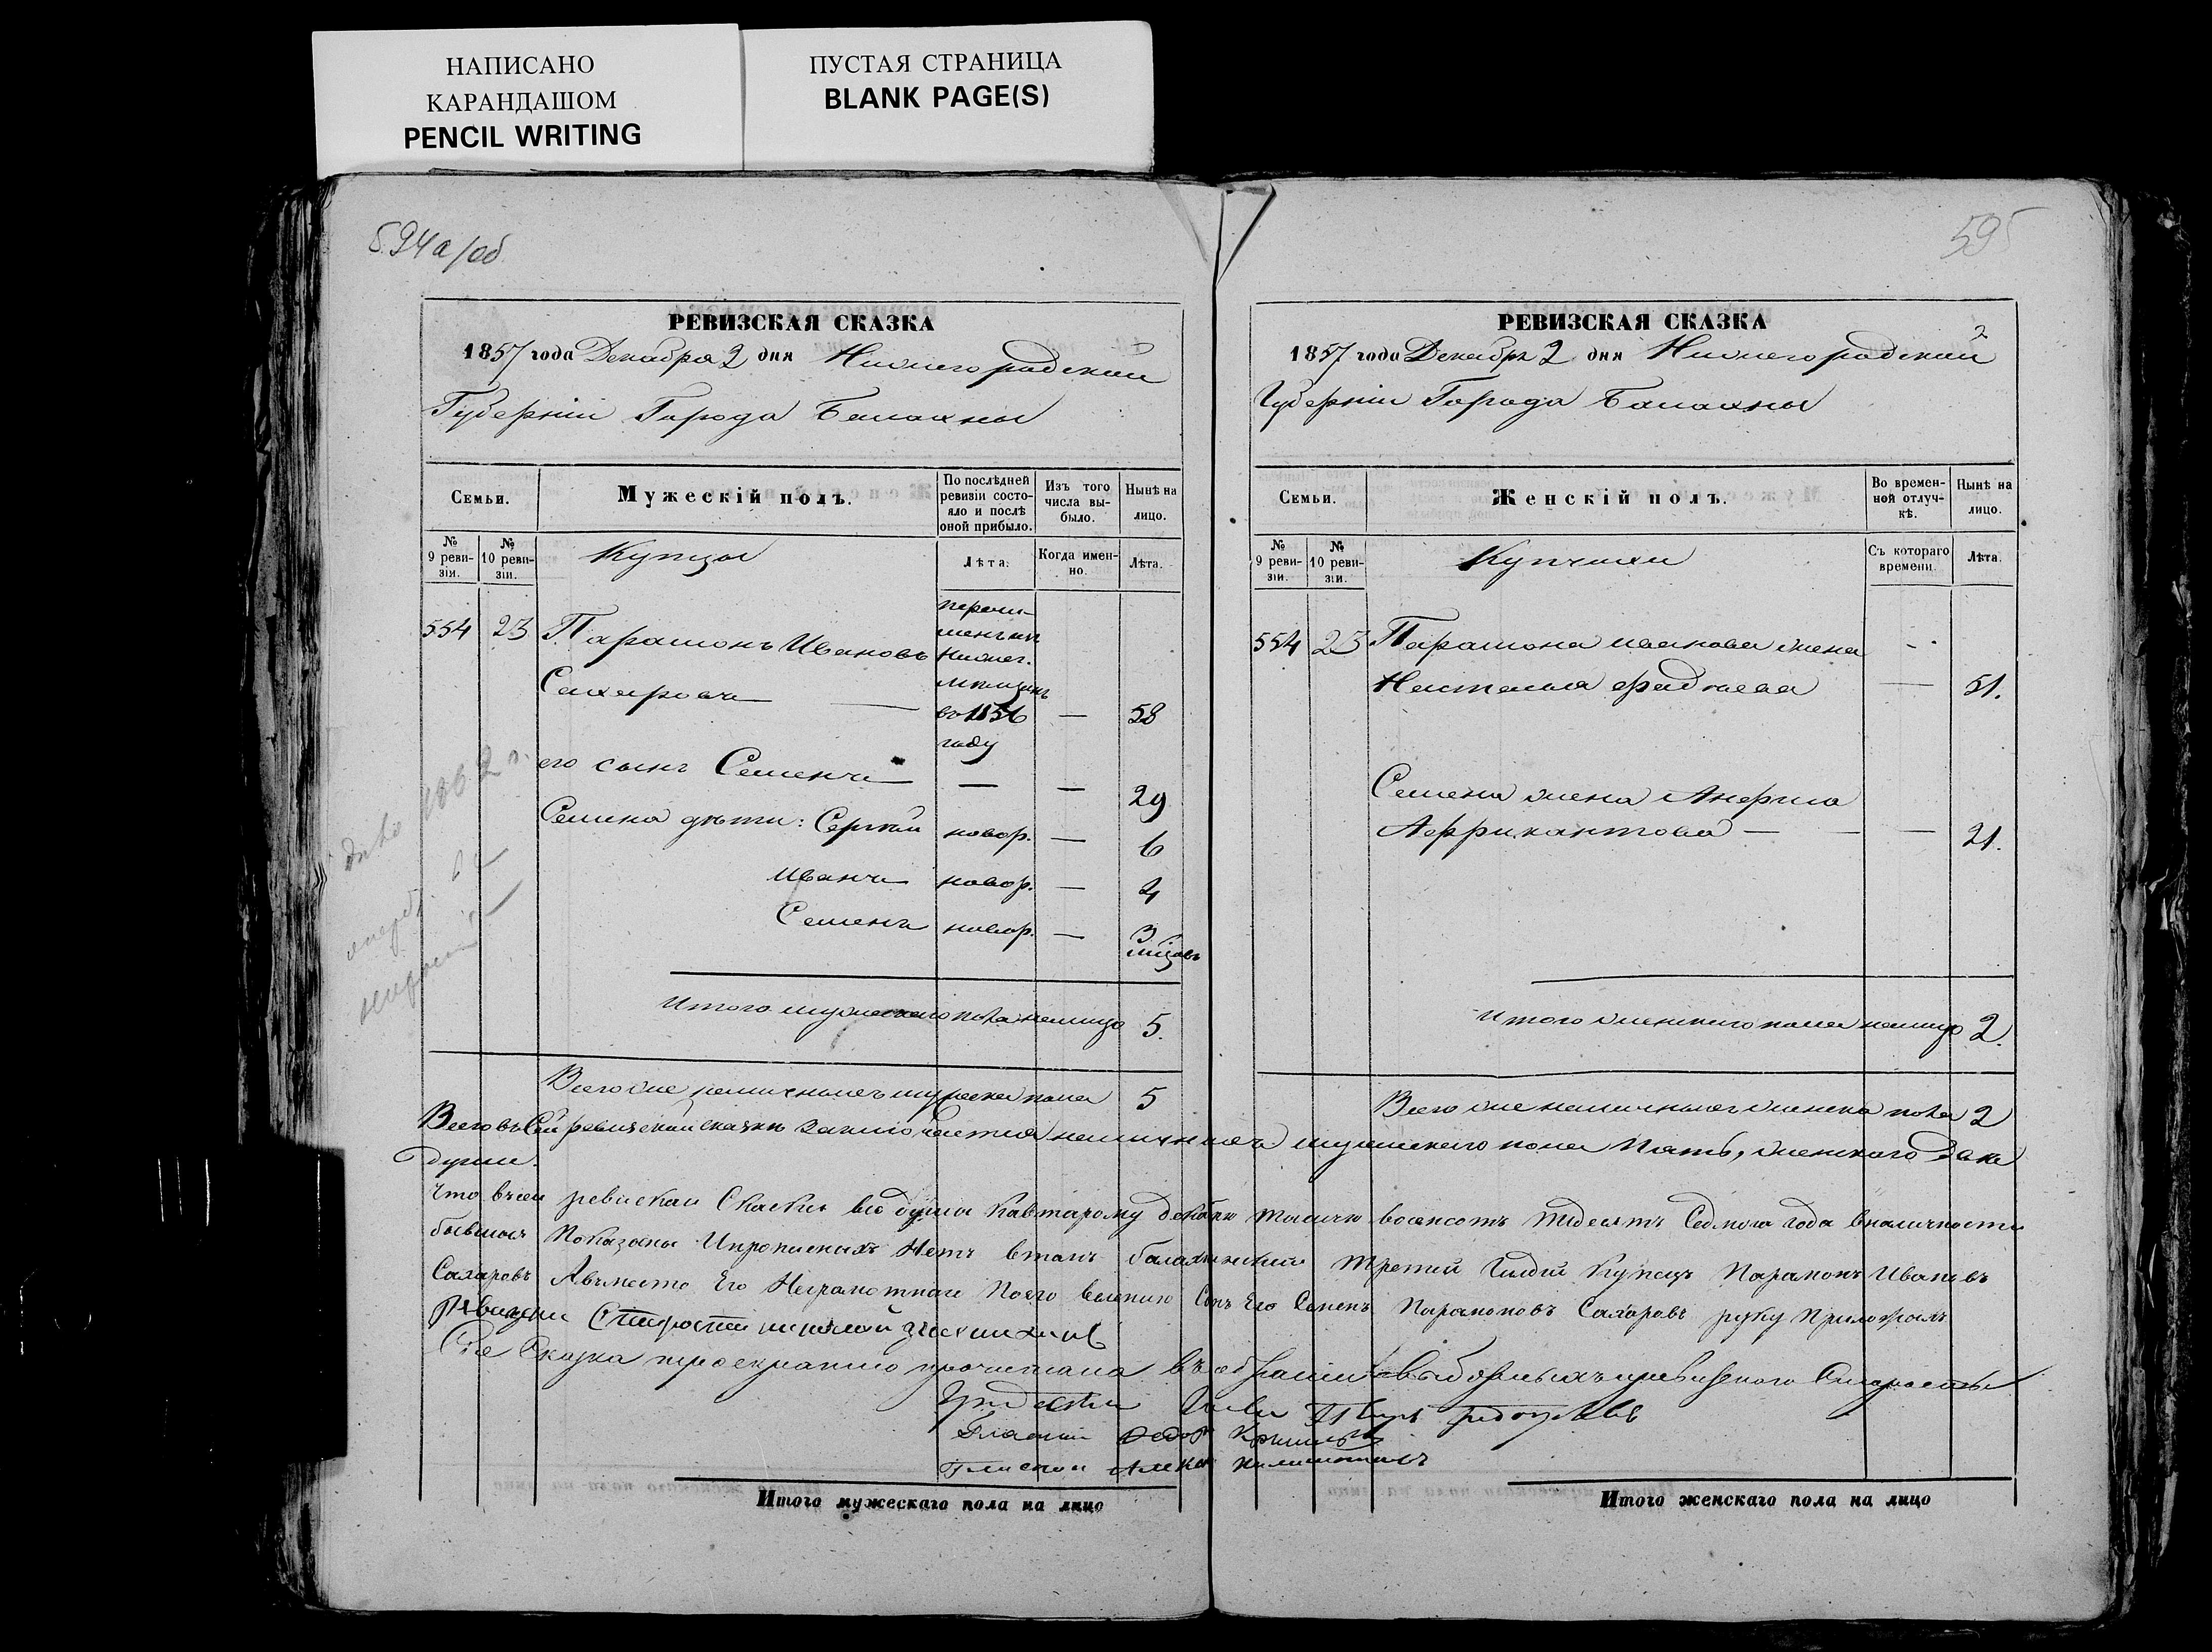 НАПИСАНО
КАРАНДАШОМ
PENCIL WRITING
ПУСТАЯ СТРАНИЦА
BLANK PAGE(S)
594а/об
РЕВИЗСКАЯ СКАЗКА
1857 года Декабря 2 дня Нижегородской
Губернiи Города Балахны
Семьи.
Мужескій полъ.
По послѣдней ревизіи состояло и послѣ оной прибыло.
Изъ того числа выбыло.
Нынѣ на лицо.
№ 9 ревизіи.
№ 10 ревизіи.
Купцы
Лѣта.
Когда именно.
Лѣта.
554 23 Парамонъ Ивановъ
Сахаровъ —
въ 1856 — 58
году
его сынъ Семенъ — — 29
Семена дѣти: Сергѣй новор. — 6
Иванъ новор. — 4
Семенъ новор. — 3
мѣсяцовъ
Итого мужескаго пола на лицо 5.
Всего же наличныхъ мужеска пола 5
595
2
РЕВИЗСКАЯ СКАЗКА
1857 года Декабря 2 дня Нижегородской
Губернiи Города Балахны
Семьи.
Женскій полъ.
Во временной отлучкѣ.
Нынѣ на лицо.
№ 9 ревизіи.
№ 10 ревизіи.
Купчихи
Съ котораго времени.
Лѣта.
554 23 Парамона Иванова жена —
Настасья — 51.
Семена жена
Африкантова — — — 21.
Итого женскаго пола на лицо 2.
Всего же наличныхъ женска пола 2
Всего въ сей ревизской сказкѣ заключается наличныхъ мужескаго пола пять, женскаго двѣ
души.
Что в сей ревиской Скаски все души Кавтарому декабрю тысячю восемсотъ седмого года вналичности
бывшыя Показаны Ипрописныхъ Нетъ втомъ балахнинский Третий Гилдии Купецъ Парамонъ Ивановъ
Сахаровъ Авместо Его Неграмотнаго Поего велению Сынъ Его Семенъ Парамоновъ Сахаровъ руку Приложилъ
Сія Сказка прочитана въ собраніи выборныхъ
Гласный Федор
Гласной
Итого мужескаго пола на лицо
Итого женскаго пола на лицо